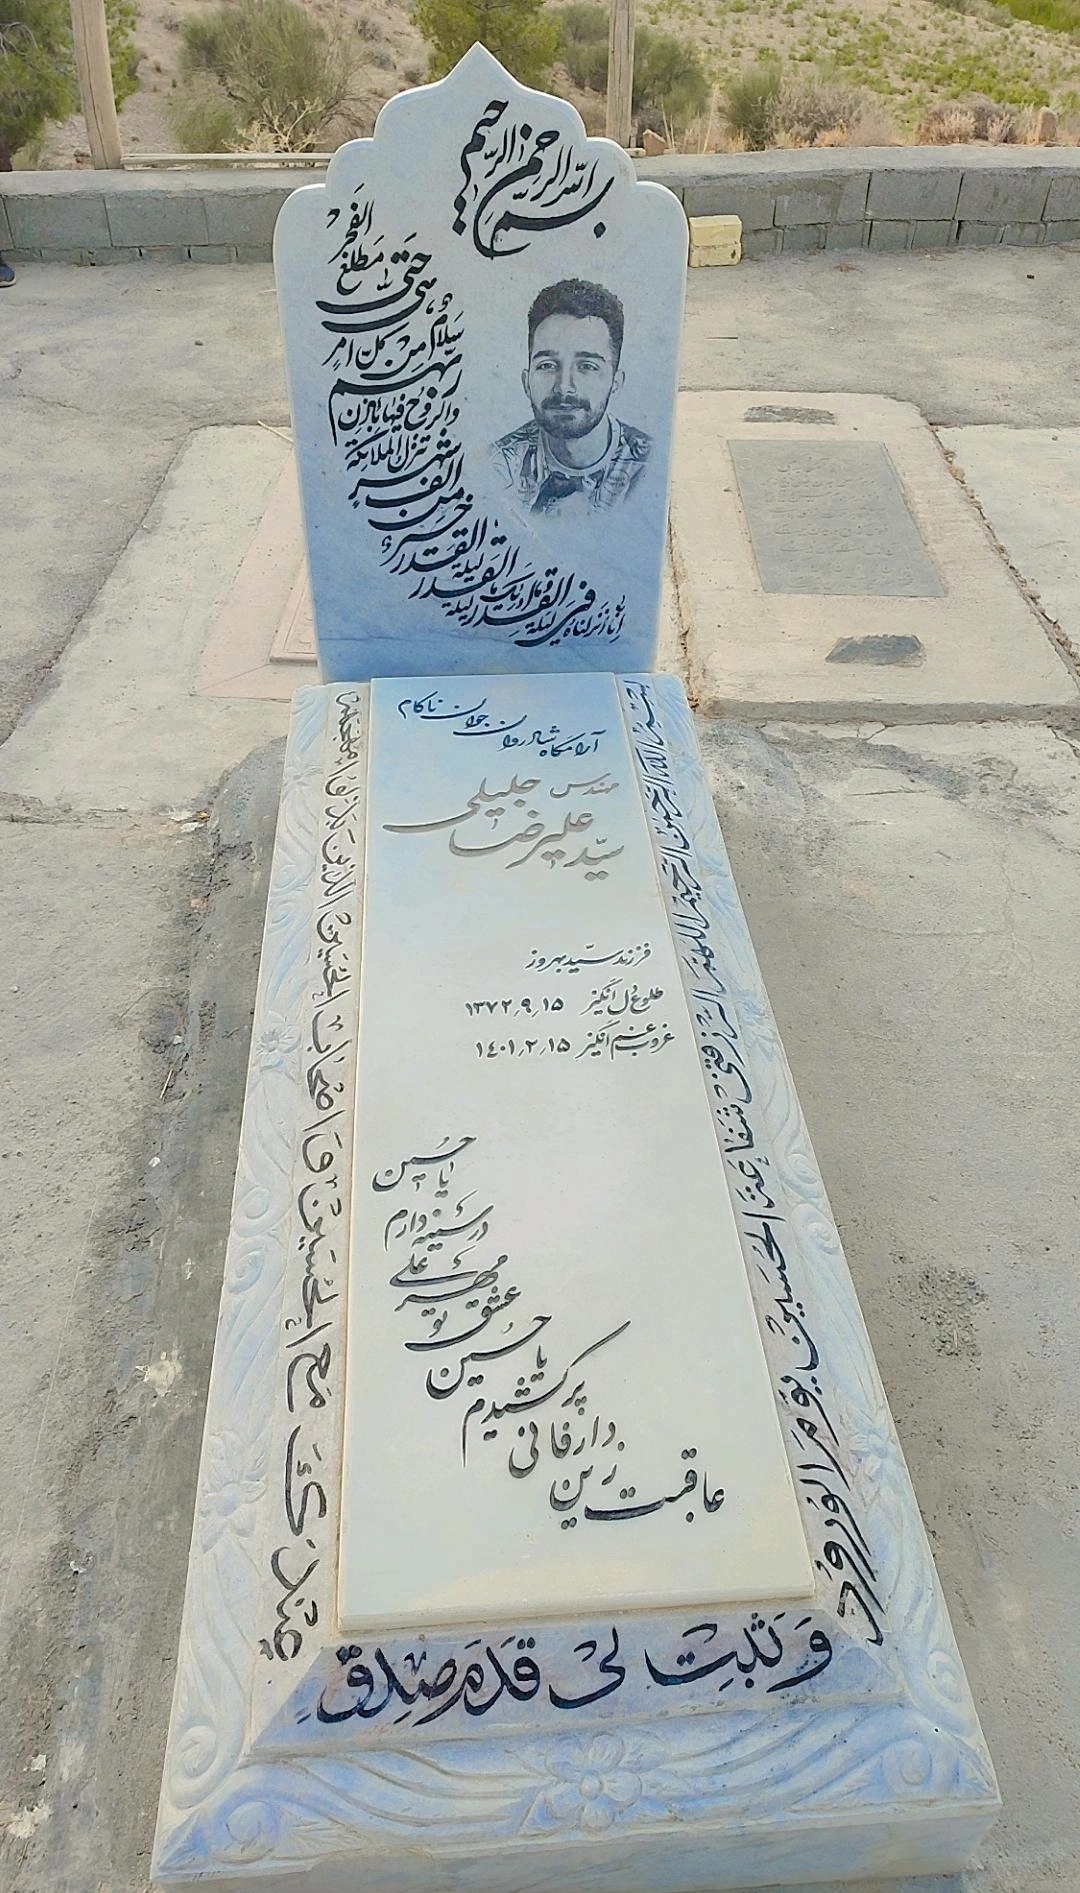 بسم الله الرحمن الرحیم
إنا أنزلناه
في لیلة القدر
وما أدریک ما
لیلة القدر
لیلة القدر
خیر
من
ألف
شهر
تنزل الملائکة
والروح فیها بإذن
ربهم
من کل أمر
سلام
هی حتی
مطلع
الفجر
آرامگاه شادروان جوان ناکام
مهندس
سیّد علیرضا جلیلی
فرزند سیّد بهروز
طلوع دل انگیز ۱۳۷۲٫۹٫۱۵
غروب غم انگیز ۱۴۰۱٫۲٫۱۵
عاقبت
زین
دار فانی
پر کشیدم
یا حسین
عشق تو
مهر علی
در سینه دارم
یا حسین
بسم الله الرحمن الرحیم اللهم ارزقنی شفاعة الحسین یوم الورود
و ثبت لی قدم صدق
عندک مع الحسین و اصحاب الحسین الذین بذلوا مهجهم